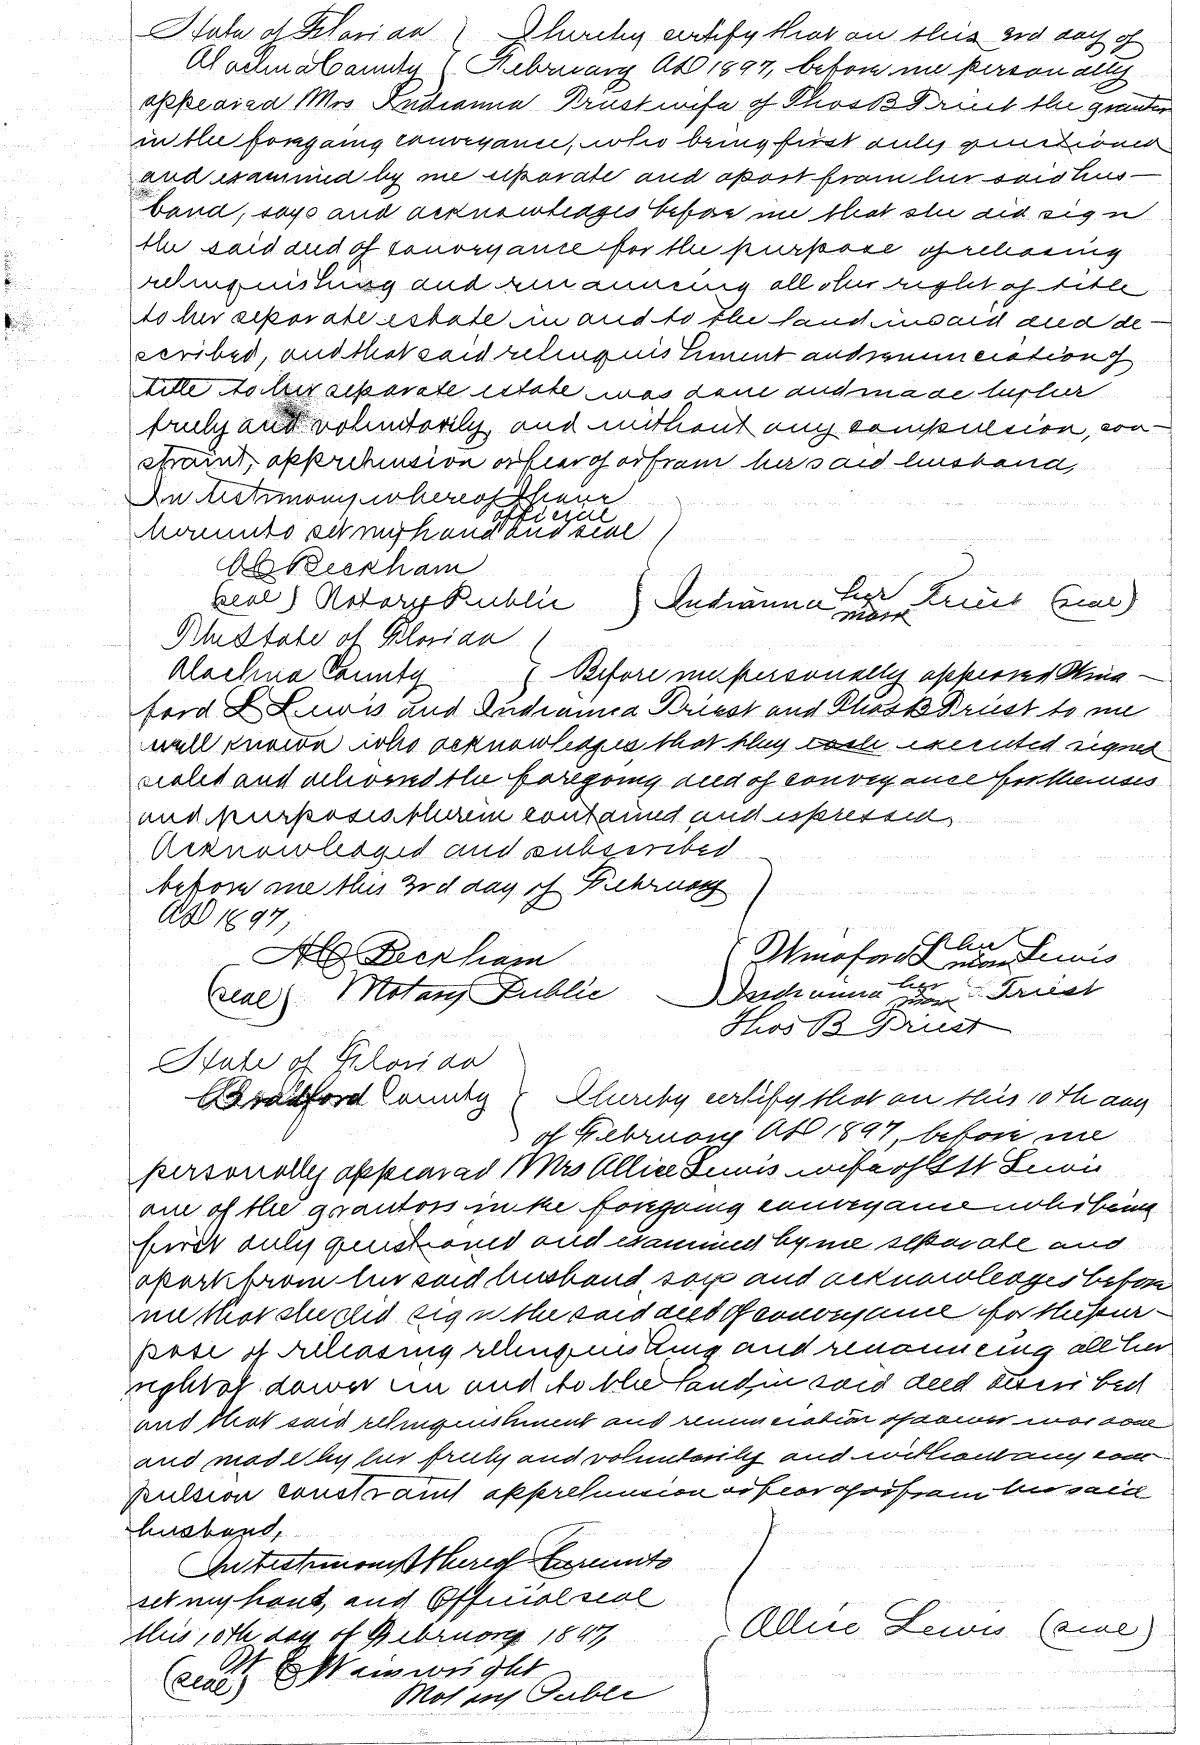 State of Florida } I hereby certify that on this 3rd day of
Alachua County { February AD 1897, before me personally
appeared Mrs Indianna Priest wife of Thos B Priest the grantor
in the foregoing conveyance, who being first duly questioned
and examined by me separate and apart from her said hus-
band, says and acknowledges before me that she did sign
the said deed of conveyance for the purpose of releasing
relinquishing and renouncing all her right of title
to her separate estate in and to the land in said deed de-
scribed, and that said relinquishment and renunciation of
title to her separate estate was done and made by her
freely and voluntarily, and without any compulsion, con-
straint, apprehension or fear of or from her said husband,
In testimony whereof I have
hereunto set my hand and official seal
AC Beckham
(seal) Notary Public } Indianna her mark Priest (seal)
The State of Florida
Alachua County { Before me personally appeared Wina-
ford L Lewis and Indianna Priest and Thos B Priest to me
well known who acknowledges that they each executed signed
sealed and delivered the foregoing deed of conveyance for the uses
and purposes therein contained and expressed,
Acknowledged and subscribed
before me this 3rd day of February
AD 1897,
AC Beckham { Winaford L her mark Lewis
(seal) Notary Public Indianna her mark Priest
Thos B Priest
State of Florida
Bradford County { I hereby certify that on this 10th day
of February AD 1897, before me
personally appeared Mrs Allice Lewis wife of Lewis
one of the grantors in the foregoing conveyance who being
first duly questioned and examined by me separate and
apart from her said husband, says and acknowledges before
me that she did sign the said deed of conveyance for the pur-
pose of releasing relinquishing and renouncing all her
right of dower in and to the land in said deed described
and that said relinquishment and renunciation of dower was done
and made by her freely and voluntarily and without any com
pulsion constraint apprehension or fear of or from her said
husband,
In testimony thereof hereunto
set my hand, and Official seal
this 10th day of February 1897, Allice Lewis (seal)
(seal) W E Wainwright
Notary Public